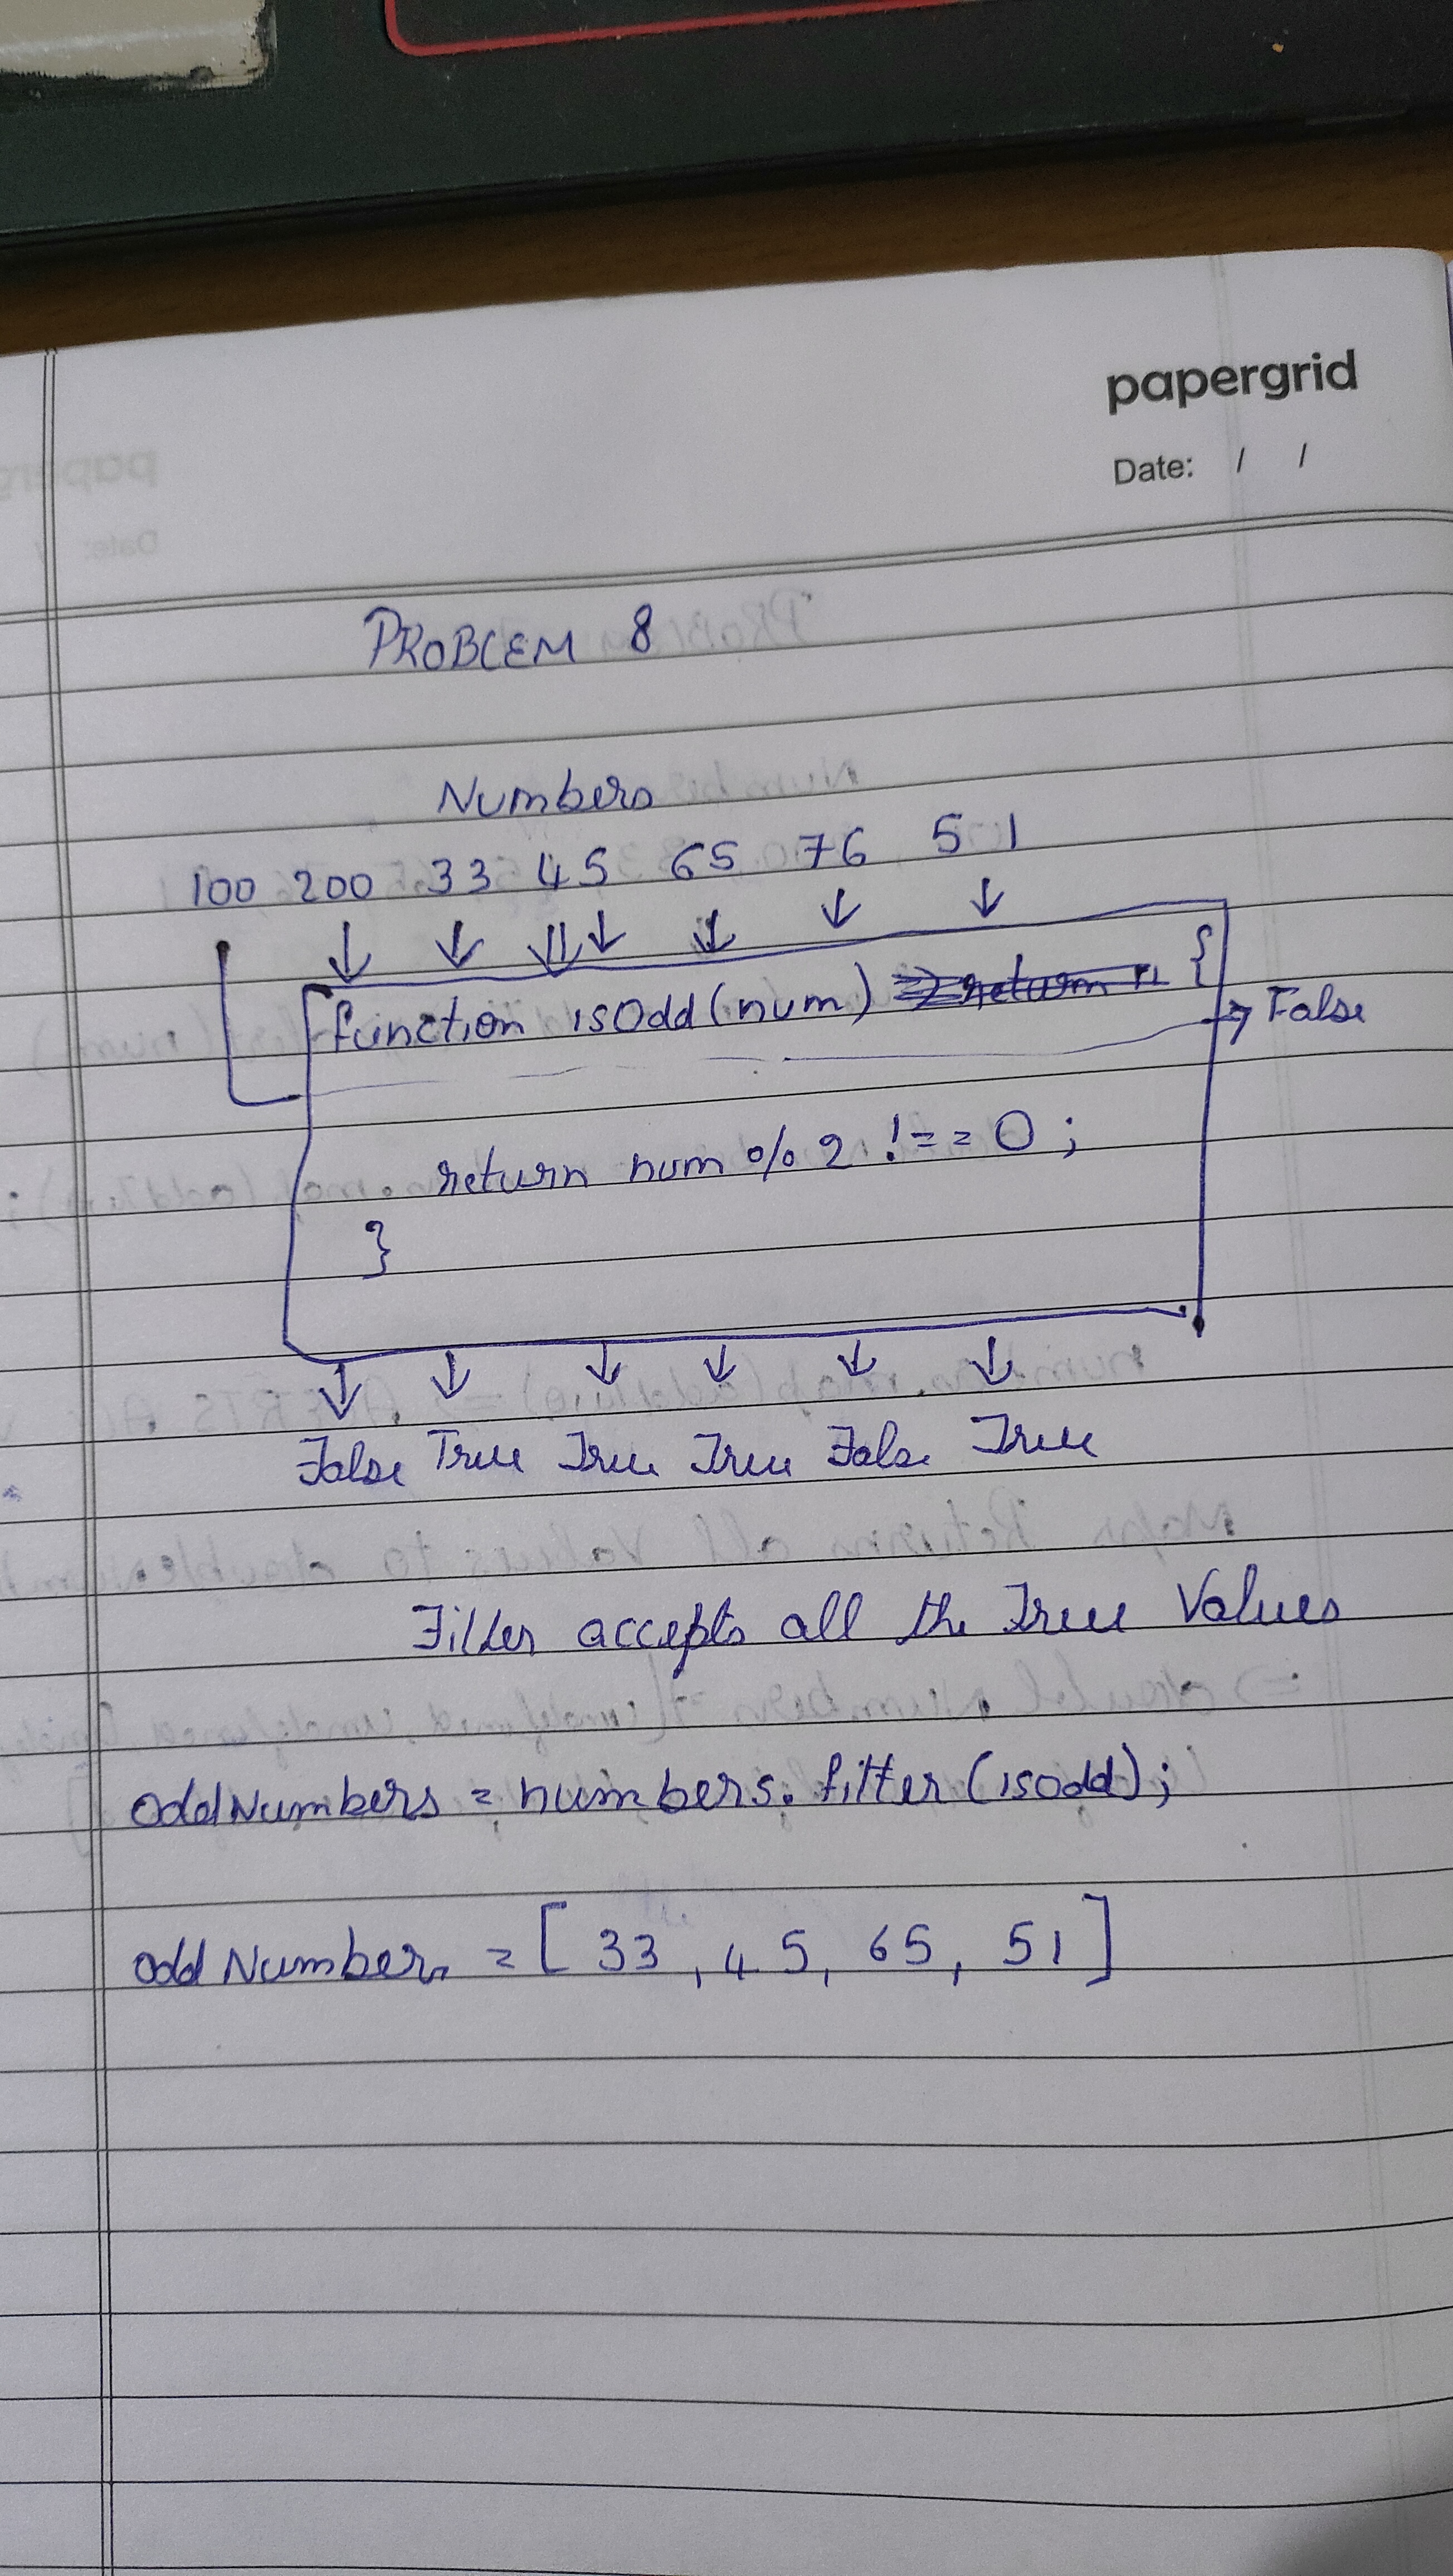 papergrid
Date: / /
PROBLEM 8
Numbers
100 200 33 45 65 76 51
function isOdd(num) {
False
return num % 2 !== 0;
}
False True True True False True
Filter accepts all the True Values
oddNumbers = numbers.filter(isodd);
odd Numbers = [33, 45, 65, 51]